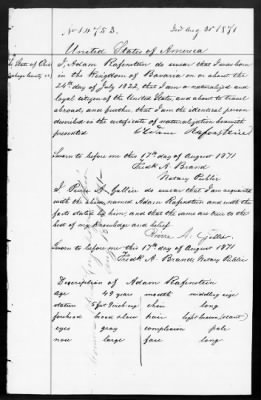 No 10753. Iss'd Aug 21st 1871
United States of America
The State of Ohio
I, Adam Rafenstein do swear that I was born
in the Kingdom of Bavaria on or about the
24th day of July 1822, that I am a naturalized and
loyal citizen of the United States, and about to travel
abroad, and further, that I am the identical person
described in the certificate of naturalization herewith
presented Adam Rafenstein
Sworn to before me this 17th day of August 1871
Fredk A. Brand
Notary Public
I, Pierre A. Gellier do swear that I am acquainted
with the above named Adam Rafenstein and with the
facts stated by him, and that the same are true to the
best of my knowledge and belief.
Pierre A. Gellier
Sworn to before me this 17th day of August 1871
Fredk A. Brand Notary Public
Description of Adam Rafenstein
age 49 years mouth middling size
stature 5 feet inch eng chin long
forehead broad & low hair light brown (scant)
eyes gray complexion pale
nose large face long